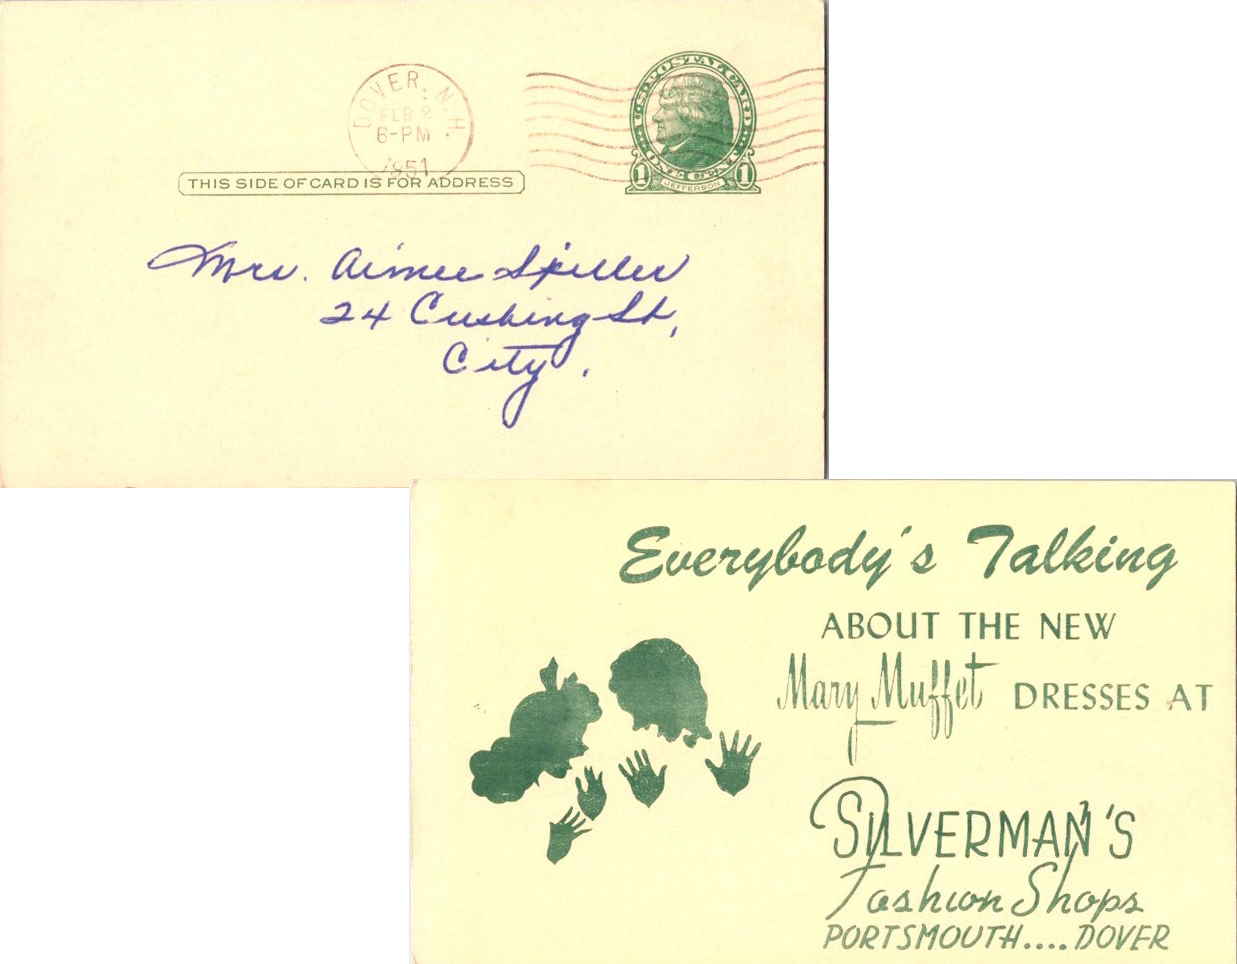 DOVER, N.H.
FEB 2
6-PM
1951
U.S. POSTAL CARD
1 ONE CENT 1
JEFFERSON
THIS SIDE OF CARD IS FOR ADDRESS
Mrs. Aimee Spiller
24 Cushing St,
City.
Everybody's Talking
ABOUT THE NEW
Mary Muffet DRESSES AT
SILVERMAN'S
Fashion Shops
PORTSMOUTH.... DOVER